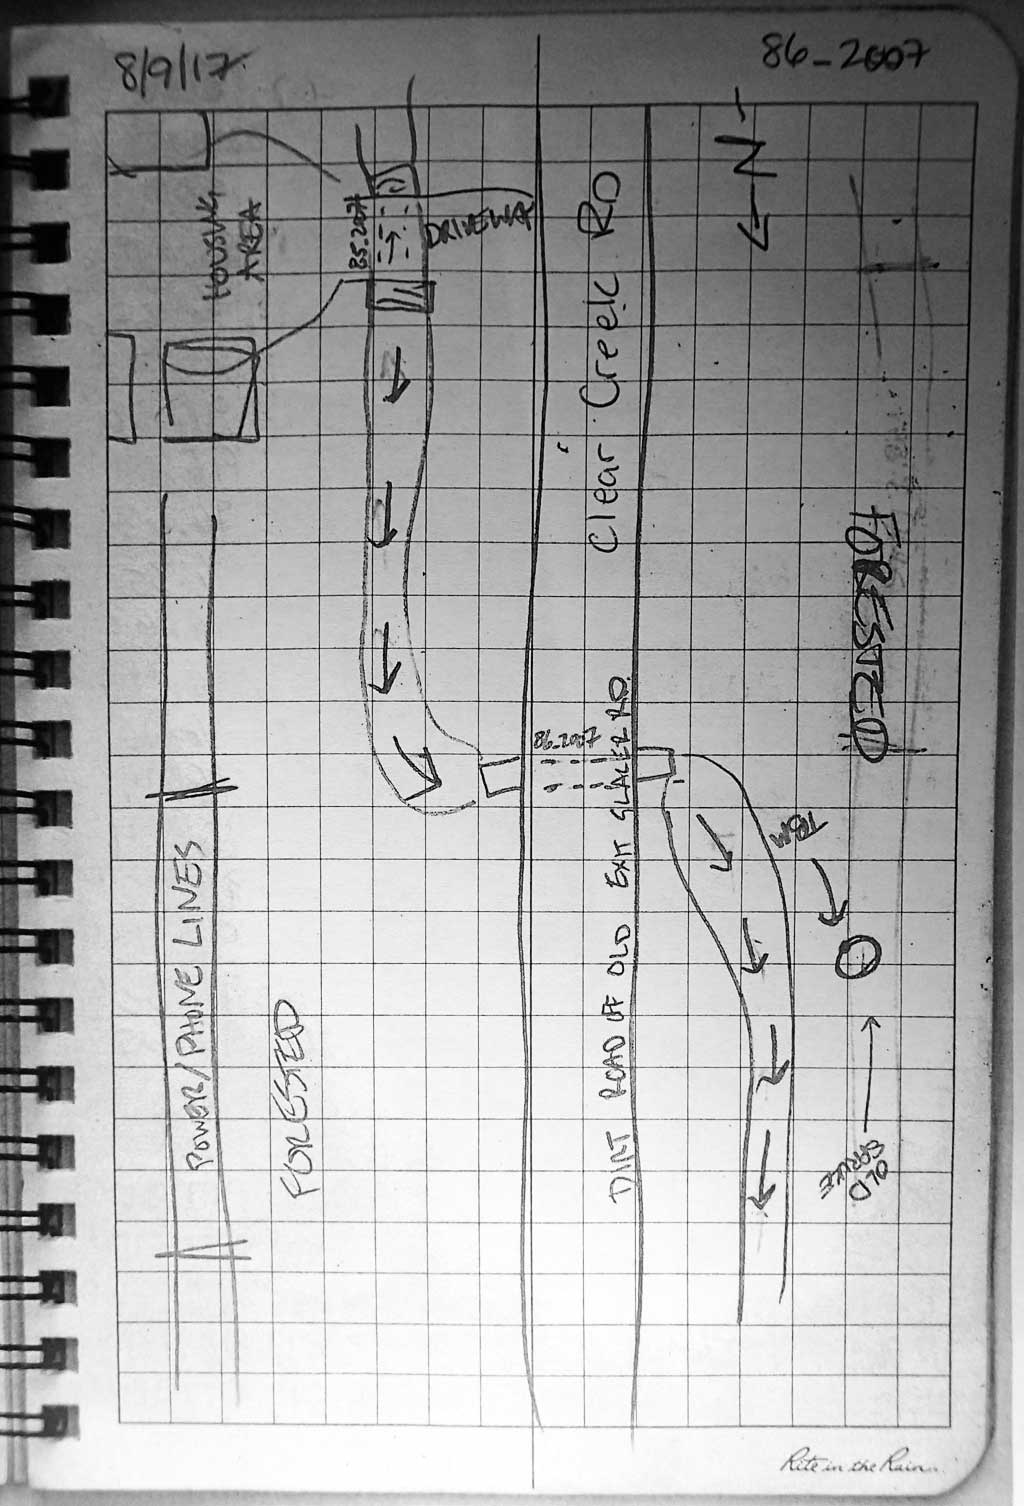 8/9/17
86_2007
N
HOUSING
AREA
85.2007
DRIVEWAY
Clear Creek RD
FORESTED
86_2007
DIRT ROAD OFF OLD EXIT GLACIER RD.
TBM
POWER/PHONE LINES
FORESTED
OLD
SPRUCE
Rite in the Rain